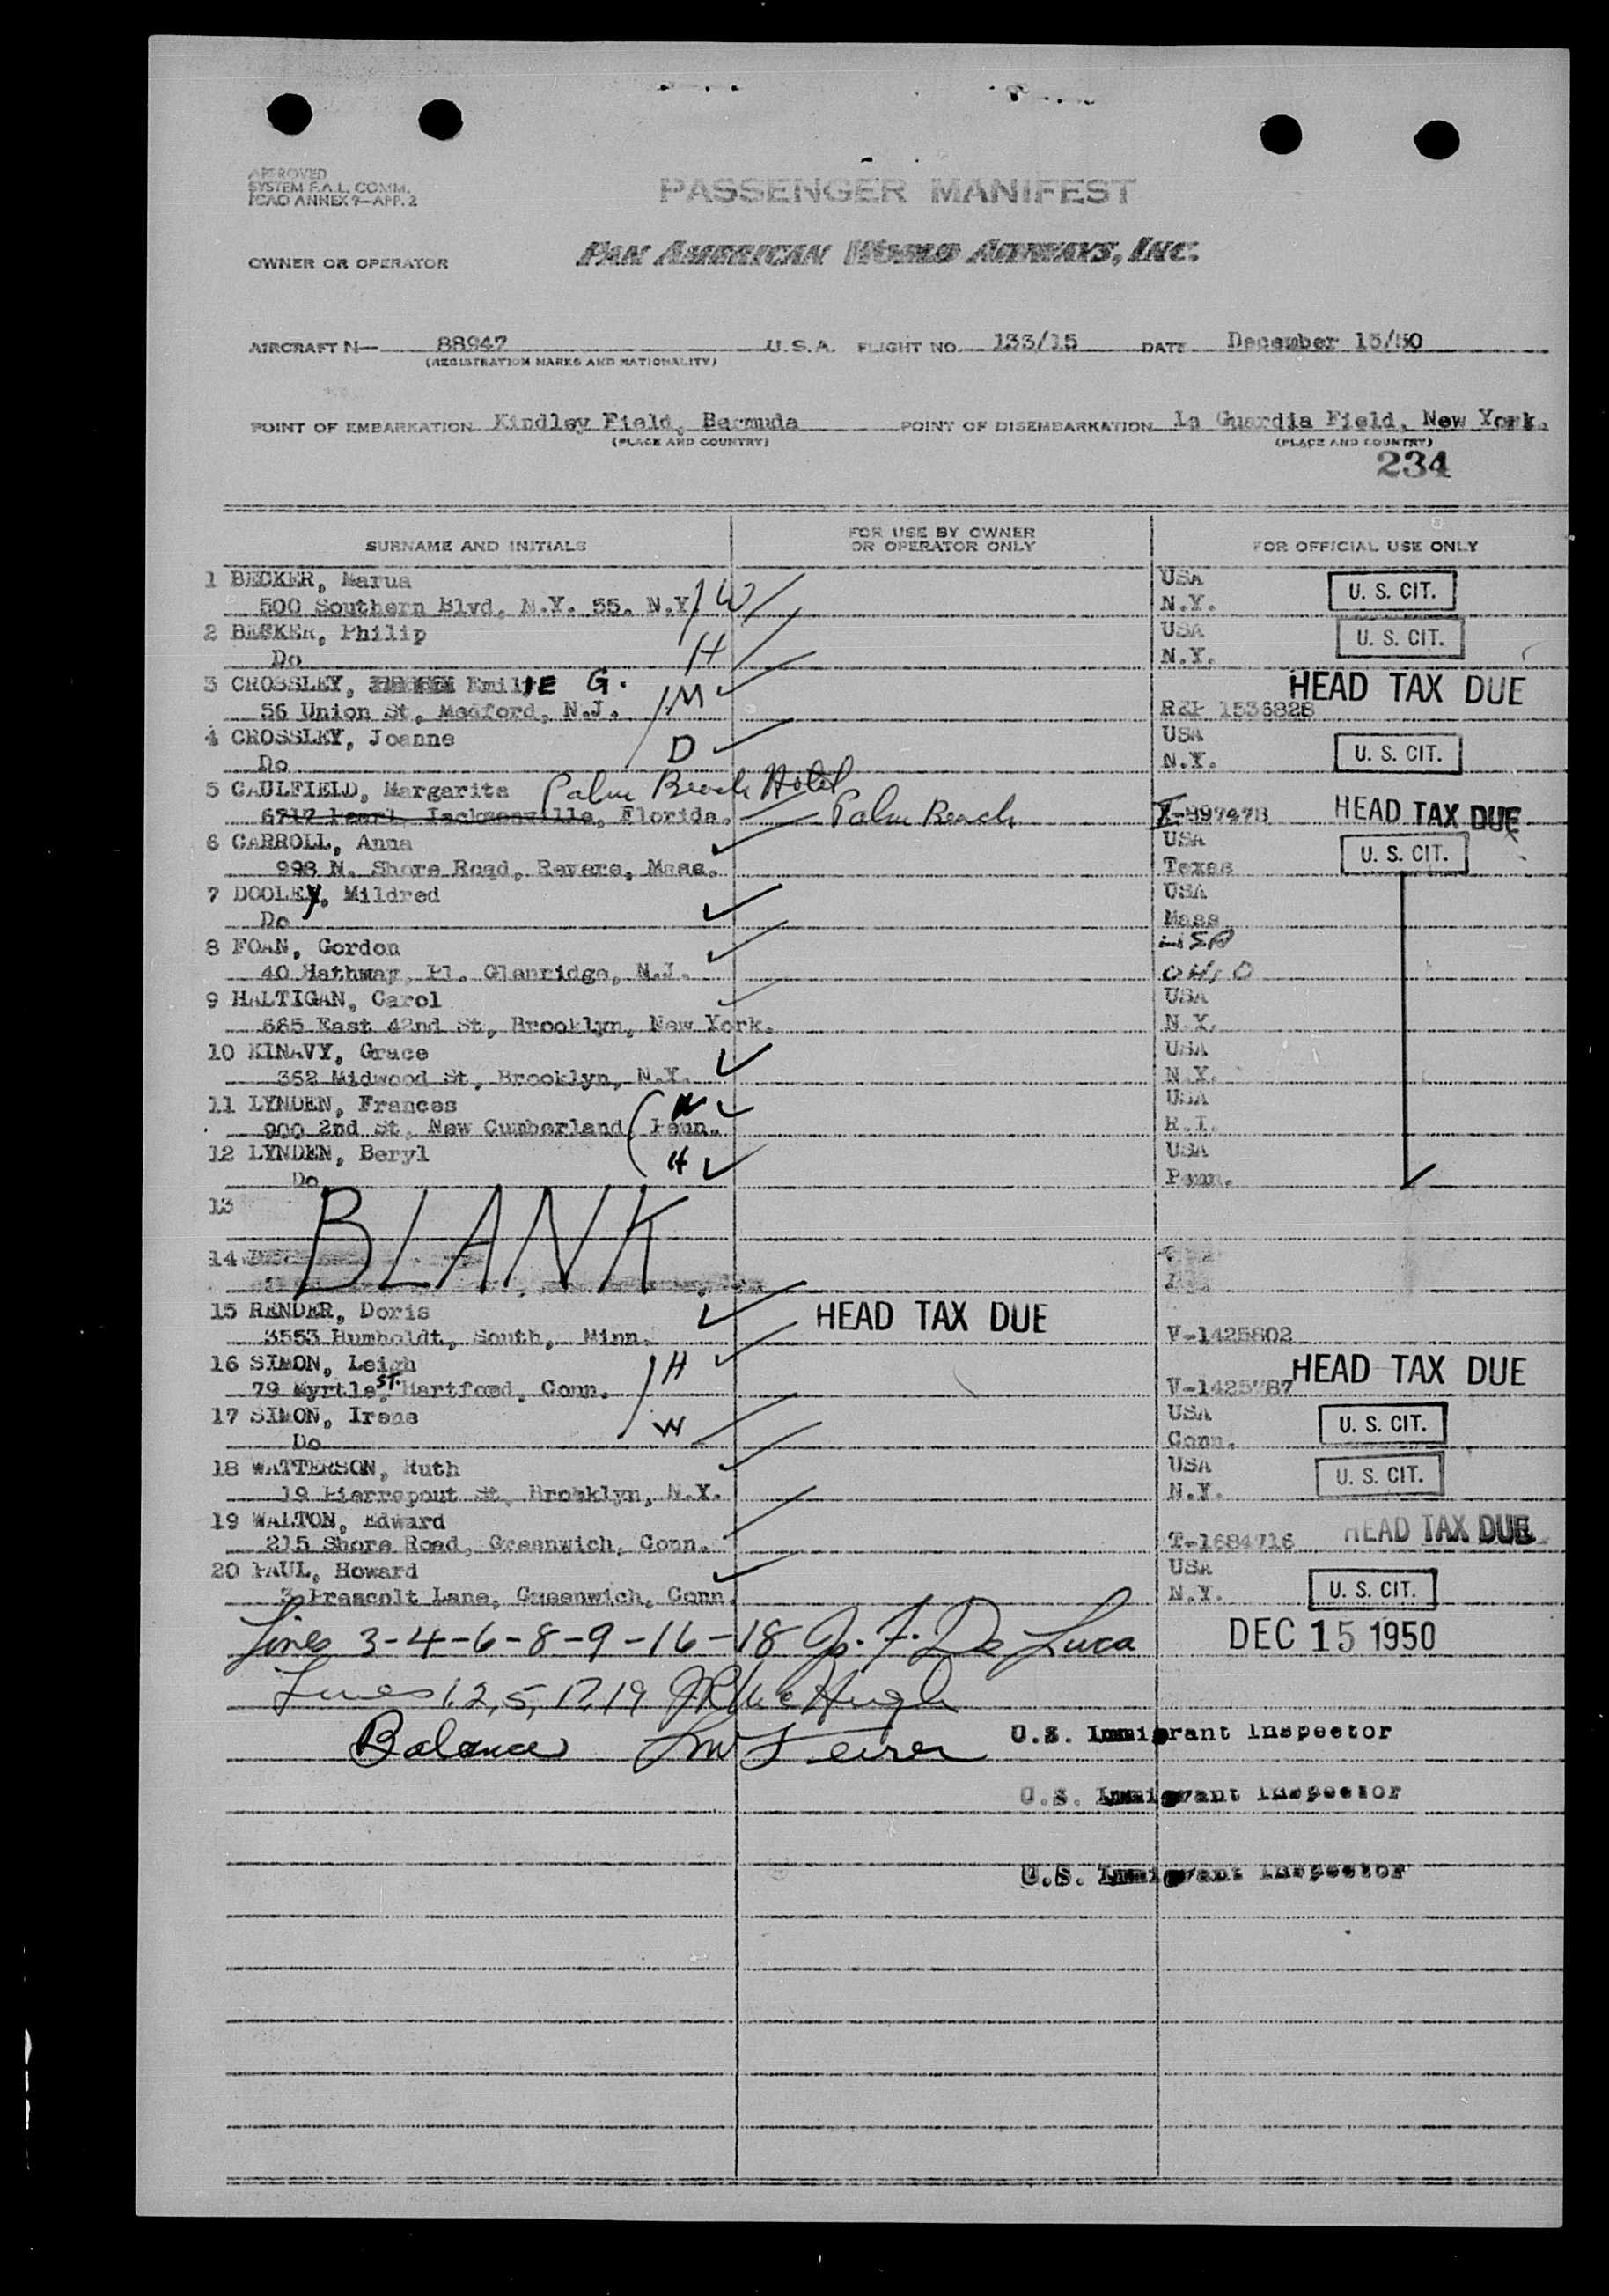 APPROVED
SYSTEM F.A.L. COMM.
ICAO ANNEX 9—APP. 2
PASSENGER MANIFEST
OWNER OR OPERATOR PAN AMERICAN WORLD AIRWAYS, INC.
AIRCRAFT N— 88947 U.S.A. FLIGHT NO. 133/15 DATE December 15/50
(REGISTRATION MARKS AND NATIONALITY)
POINT OF EMBARKATION Kindley Field, Bermuda POINT OF DISEMBARKATION La Guardia Field, New York.
(PLACE AND COUNTRY) (PLACE AND COUNTRY)
234
SURNAME AND INITIALS FOR USE BY OWNER OR OPERATOR ONLY FOR OFFICIAL USE ONLY
1 BECKER, Marua USA U. S. CIT.
500 Southern Blvd, N.Y. 55. N.Y. W N.Y.
2 BECKER, Philip USA U. S. CIT.
Do H N.Y.
3 CROSSLEY, EmilIE G. HEAD TAX DUE
56 Union St, Medford, N.J. M R&P 1536828
4 CROSSLEY, Joanne D USA U. S. CIT.
Do N.Y.
5 CAULFIELD, Margarita Palm Beach Hotel
6717 Pearl, Jacksonville, Florida. Palm Beach -997478 HEAD TAX DUE
6 CARROLL, Anna USA U. S. CIT.
998 N. Shore Road, Revere, Mass. Texas
7 DOOLEY, Mildred USA
Do Mass
8 FOAN, Gordon
40 Hathway, Pl. Glenridge, N.J. OHIO
9 HALTIGAN, Carol USA
665 East 42nd St, Brooklyn, New York. N.Y.
10 KINAVY, Grace USA
362 Midwood St, Brooklyn, N.Y. N.Y.
11 LYNDEN, Frances W USA
900 2nd St, New Cumberland, Penn. R.I.
12 LYNDEN, Beryl H USA
Do Penn.
13 BLANK
14
15 RENDER, Doris HEAD TAX DUE
3553 Humboldt, South, Minn. V-1425602
16 SIMON, Leigh H HEAD TAX DUE
79 Myrtle ST. Hartford, Conn. V-1425787
17 SIMON, Irene USA U. S. CIT.
Do W Conn.
18 WATTERSON, Ruth USA U. S. CIT.
19 Pierrepont St, Brooklyn, N.Y. N.Y.
19 WALTON, Edward
215 Shore Road, Greenwich, Conn. T-1684716 HEAD TAX DUE
20 PAUL, Howard USA U. S. CIT.
3 Prescolt Lane, Greenwich, Conn. N.Y.
Lines 3-4-6-8-9-16-18 J. F. De Luca DEC 15 1950
Lines 1,2,5,17,19 McHugh
Balance
U.S. Immigrant Inspector
U.S. Immigrant Inspector
U.S. Immigrant Inspector